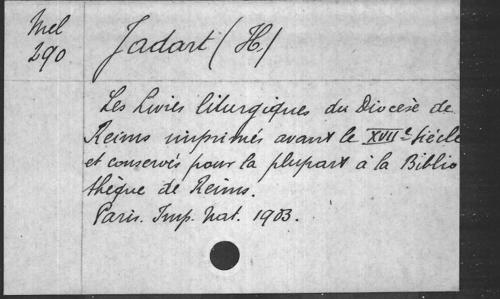 Mel
290
Jadart (H.)
Les Livres liturgiques du Diocèse de
Reims imprimés avant le XVIIe Siècle
et conservés pour la plupart à la Biblio
thèque de Reims.
Paris. Imp. Nat. 1903.